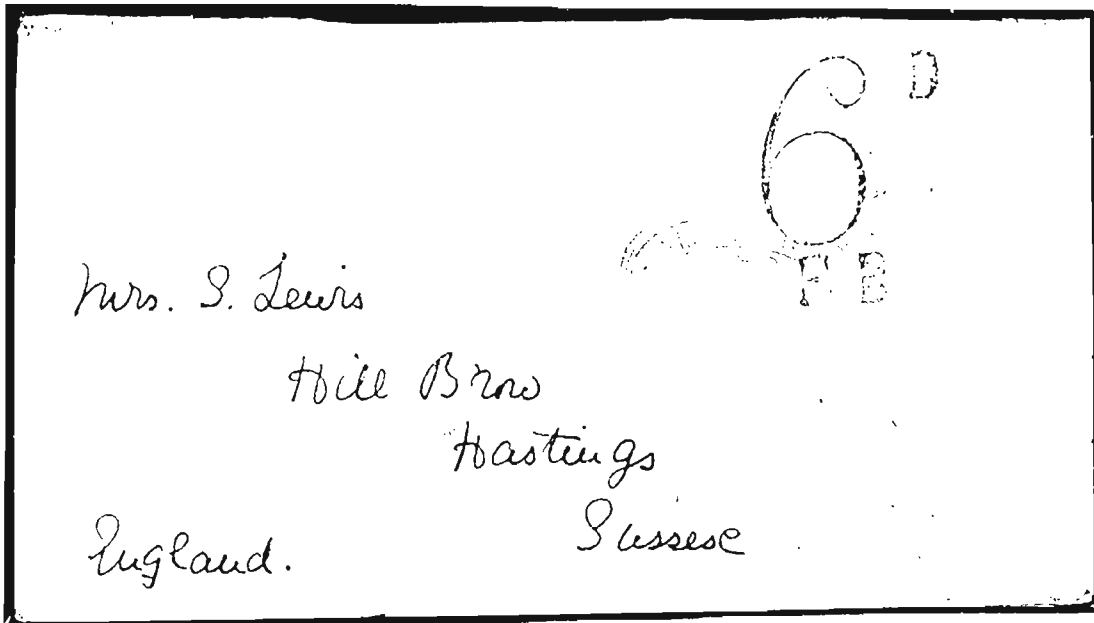 6 D
B
Mrs. S. Lewis
Hill Brow
Hastings
Sussex
England.